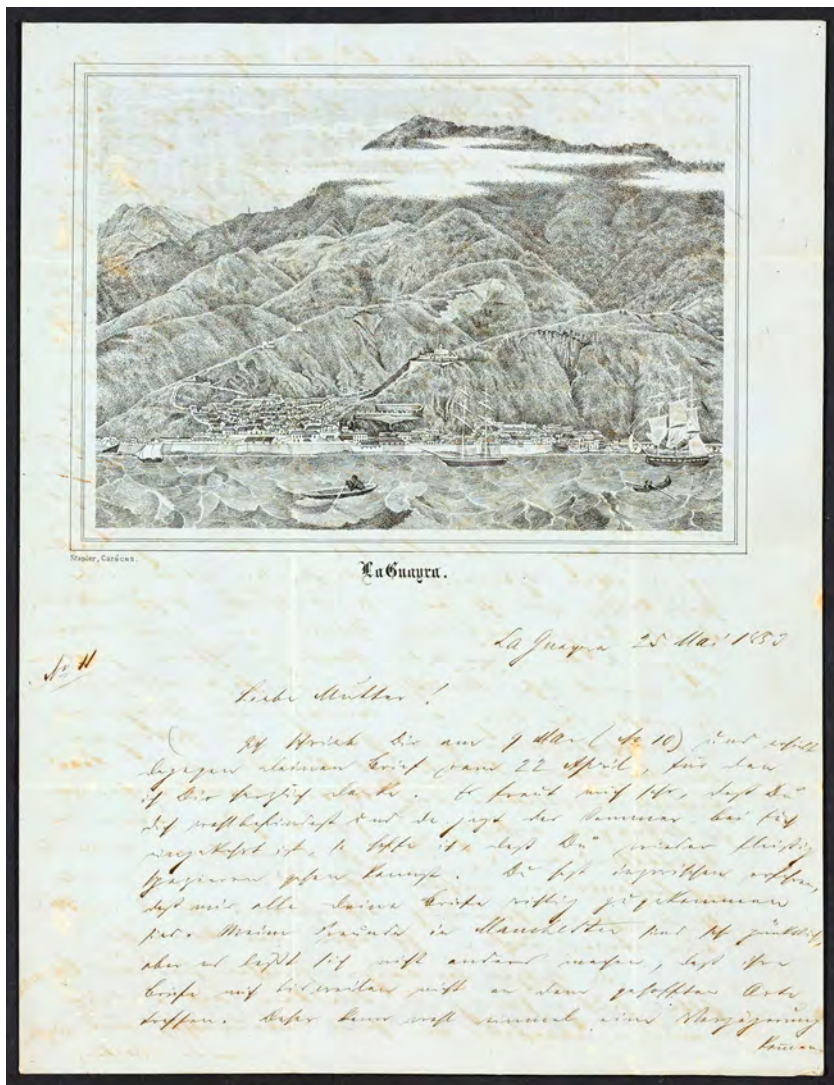 Stapler, Carácas.
La Guayra.
La Guayra 25 Mai 1853
No 11
Liebe Mutter!
Ich schrieb Dir am 9 Mai (No 10) und erhielt
dagegen deinen Brief vom 22 April, für den
ich Dir herzlich danke. Es freut mich sehr, daß Du
Dich wohlbefindest und da jetzt der Sommer bei Euch
eingekehrt ist, so hoffe ich, daß Du wieder fleißig
spazieren gehen kannst. Du hast inzwischen erfahren,
daß mir alle deine Briefe richtig zugekommen
sind. Meine Freunde in Manchester sind sehr pünktlich,
aber es läßt sich nicht anders machen, daß ihre
Briefe mich bisweilen nicht an dem gehofften Orte
treffen. Daher kann wohl einmal eine Verzögerung
kommen.